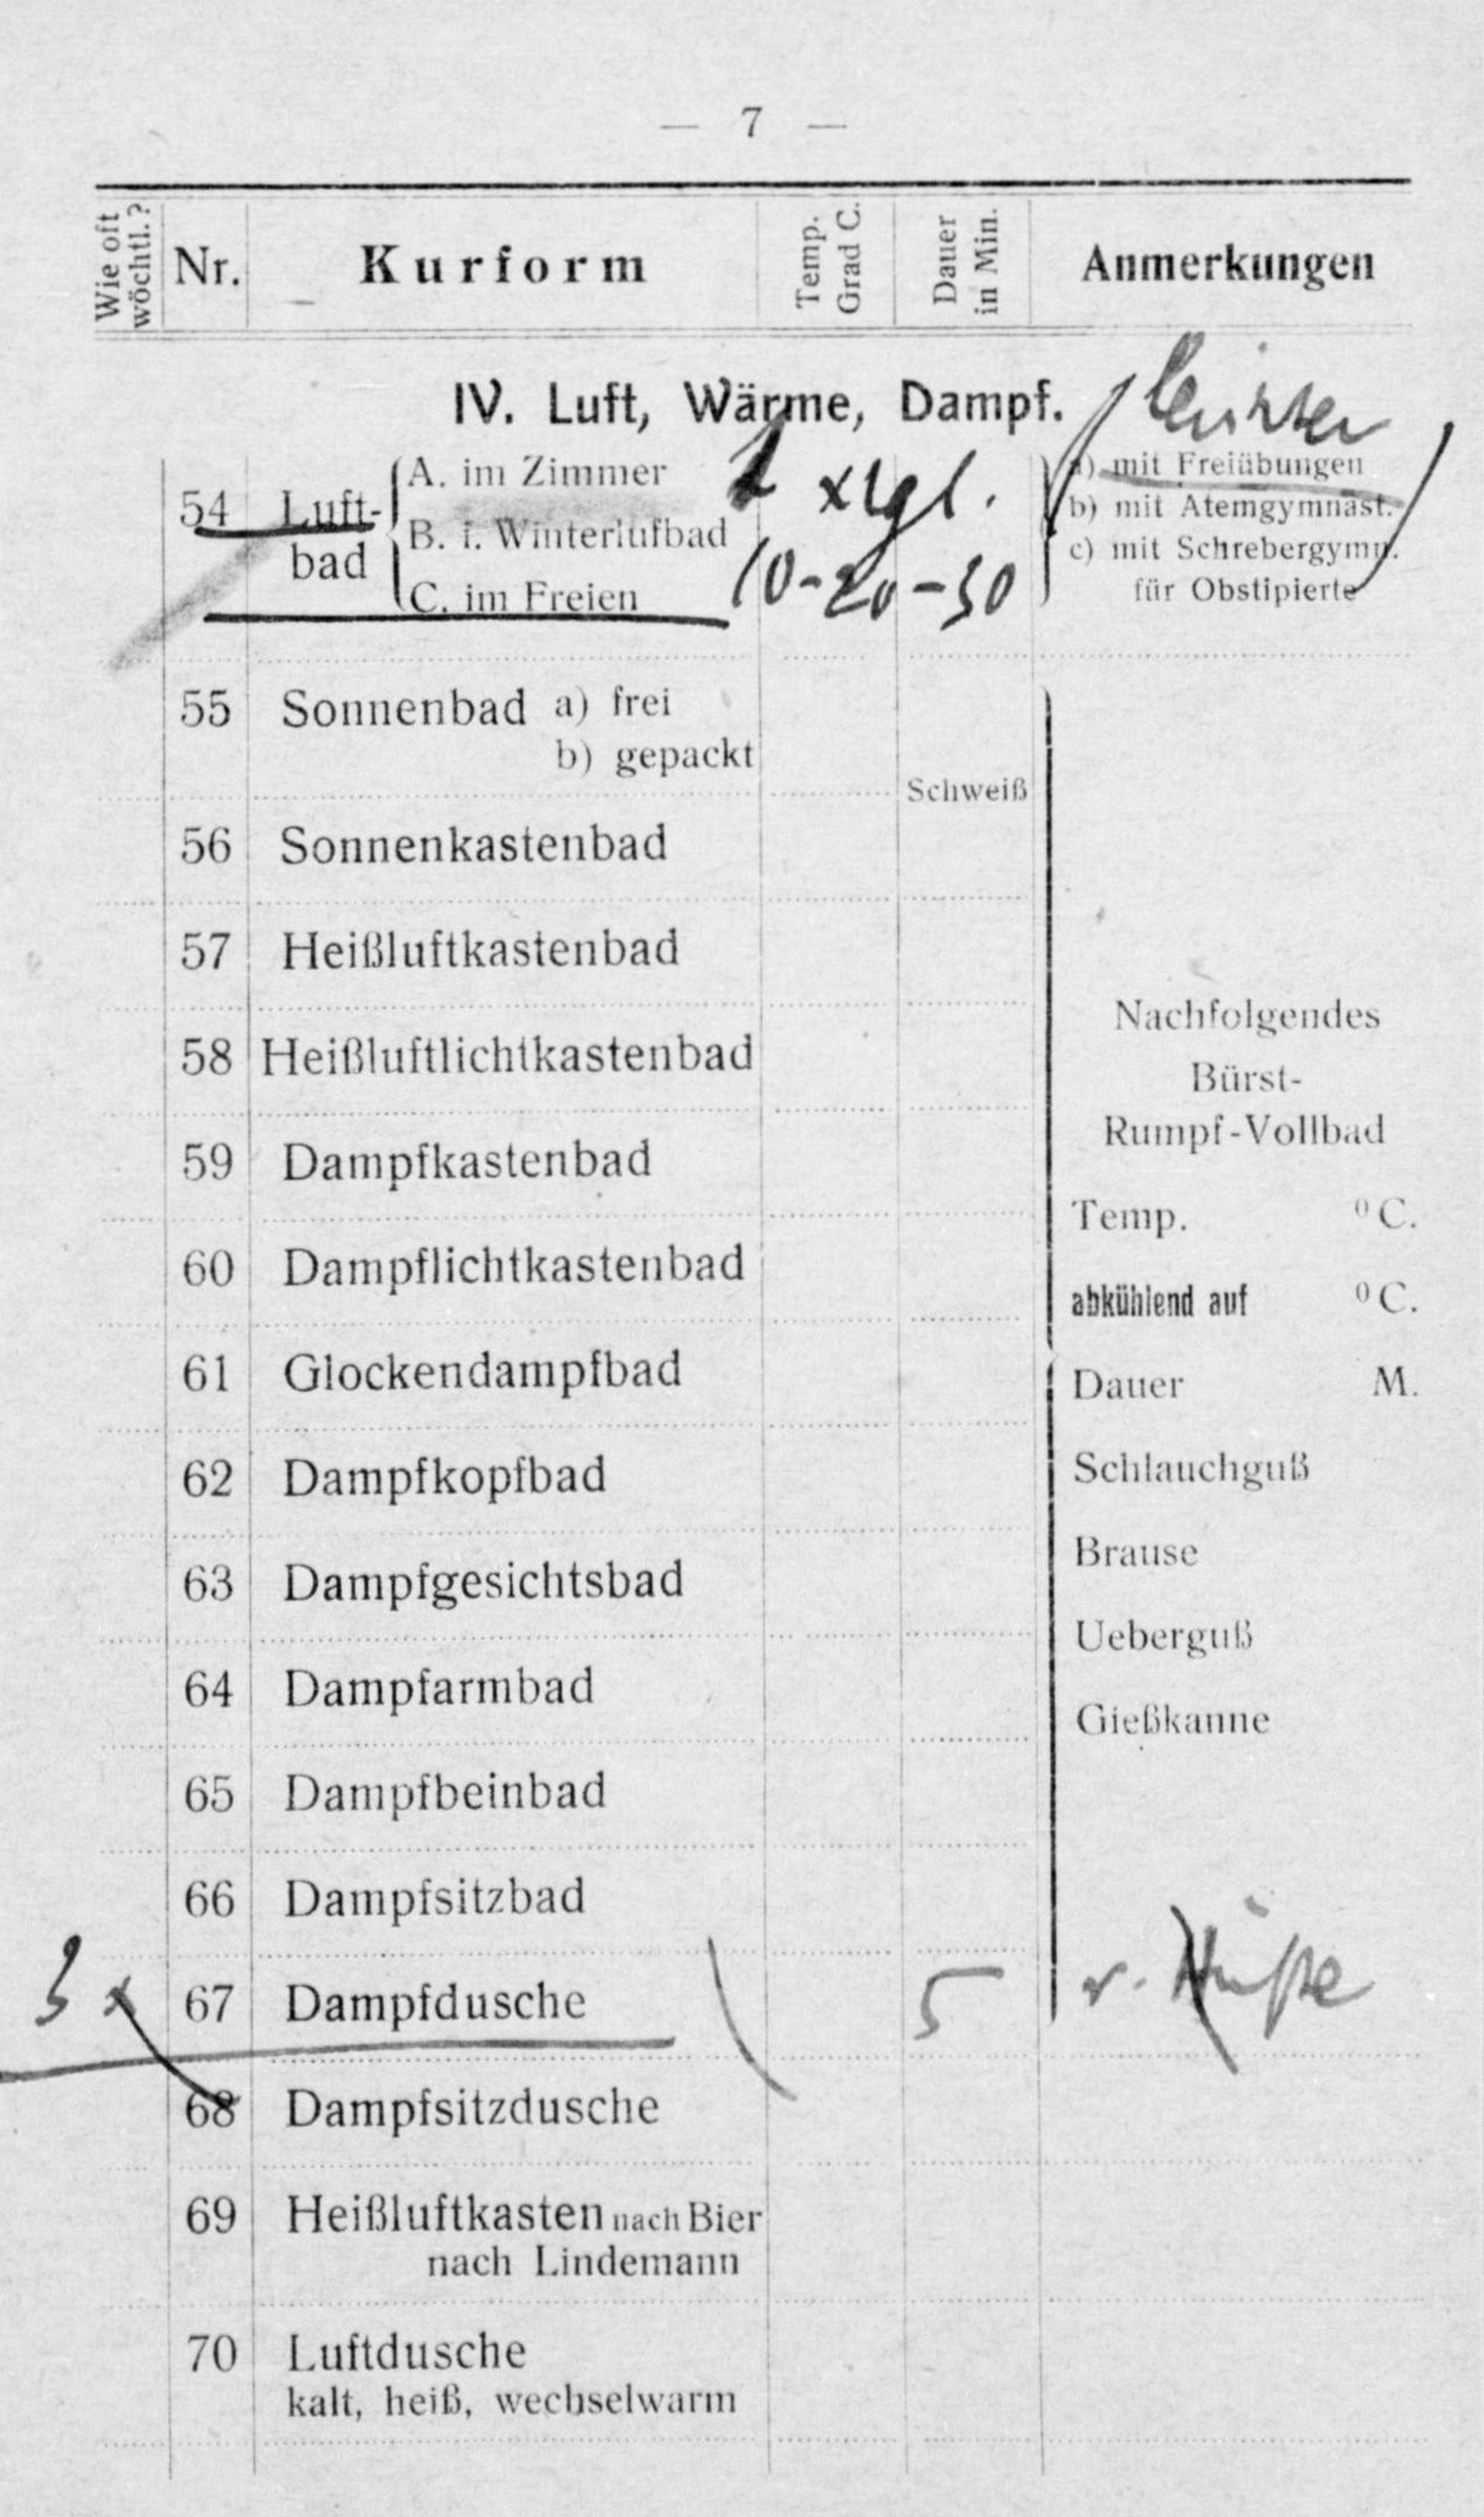 — 7 —
Wie oft wöchtl.? Nr. Kurform Temp. Grad C. Dauer in Min. Anmerkungen
IV. Luft, Wärme, Dampf.
54 Luft-bad
A. im Zimmer
B. i. Winterlufbad
C. im Freien
1 xtgl.
10-20-30
a) mit Freiübungen
b) mit Atemgymnast.
c) mit Schrebergymn.
für Obstipierte
55 Sonnenbad a) frei
b) gepackt
Schweiß
56 Sonnenkastenbad
57 Heißluftkastenbad
58 Heißluftlichtkastenbad
59 Dampfkastenbad
60 Dampflichtkastenbad
61 Glockendampfbad
62 Dampfkopfbad
63 Dampfgesichtsbad
64 Dampfarmbad
65 Dampfbeinbad
66 Dampfsitzbad
Nachfolgendes
Bürst-
Rumpf-Vollbad
Temp. ⁰C.
abkühlend auf ⁰C.
Dauer M.
Schlauchguß
Brause
Ueberguß
Gießkanne
3 x 67 Dampfdusche 5 v.
68 Dampfsitzdusche
69 Heißluftkasten nach Bier
nach Lindemann
70 Luftdusche
kalt, heiß, wechselwarm